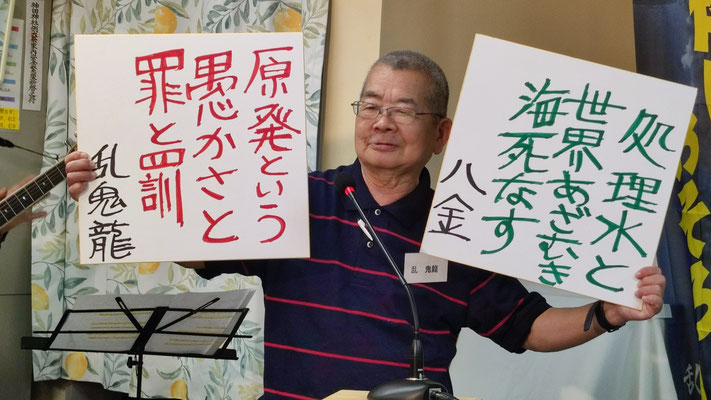 原発という
愚かさと
罪と罰
乱鬼龍
処理水と
世界あざむき
海死なす
八金
乱 鬼龍
乱